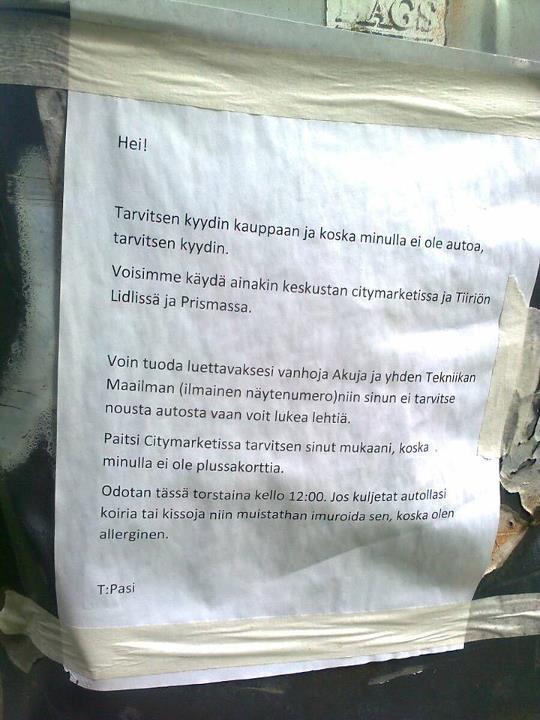 AGS
Hei!
Tarvitsen kyydin kauppaan ja koska minulla ei ole autoa,
tarvitsen kyydin.
Voisimme käydä ainakin keskustan citymarketissa ja Tiiriön
Lidlissä ja Prismassa.
Voin tuoda luettavaksesi vanhoja Akuja ja yhden Tekniikan
Maailman (ilmainen näytenumero)niin sinun ei tarvitse
nousta autosta vaan voit lukea lehtiä.
Paitsi Citymarketissa tarvitsen sinut mukaani, koska
minulla ei ole plussakorttia.
Odotan tässä torstaina kello 12:00. Jos kuljetat autollasi
koiria tai kissoja niin muistathan imuroida sen, koska olen
allerginen.
T:Pasi